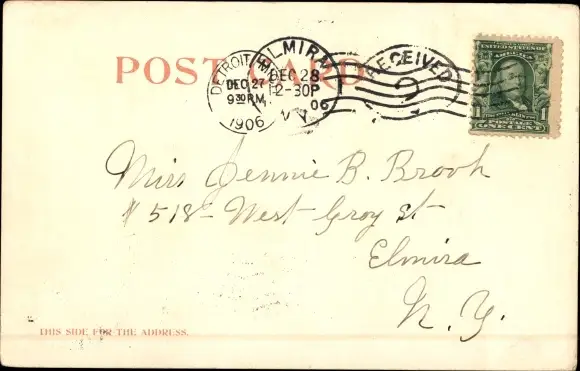 POST CARD
DETROIT, MICH.
DEC 27
9 30 PM
1906
ELMIRA
DEC 28
12-30P
06
N.Y.
RECEIVED
2
UNITED STATES OF AMERICA
1 POSTAGE 1
ONE CENT
Miss Jennie B. Brook
# 518- West Gray St
Elmira
N. Y.
THIS SIDE FOR THE ADDRESS.